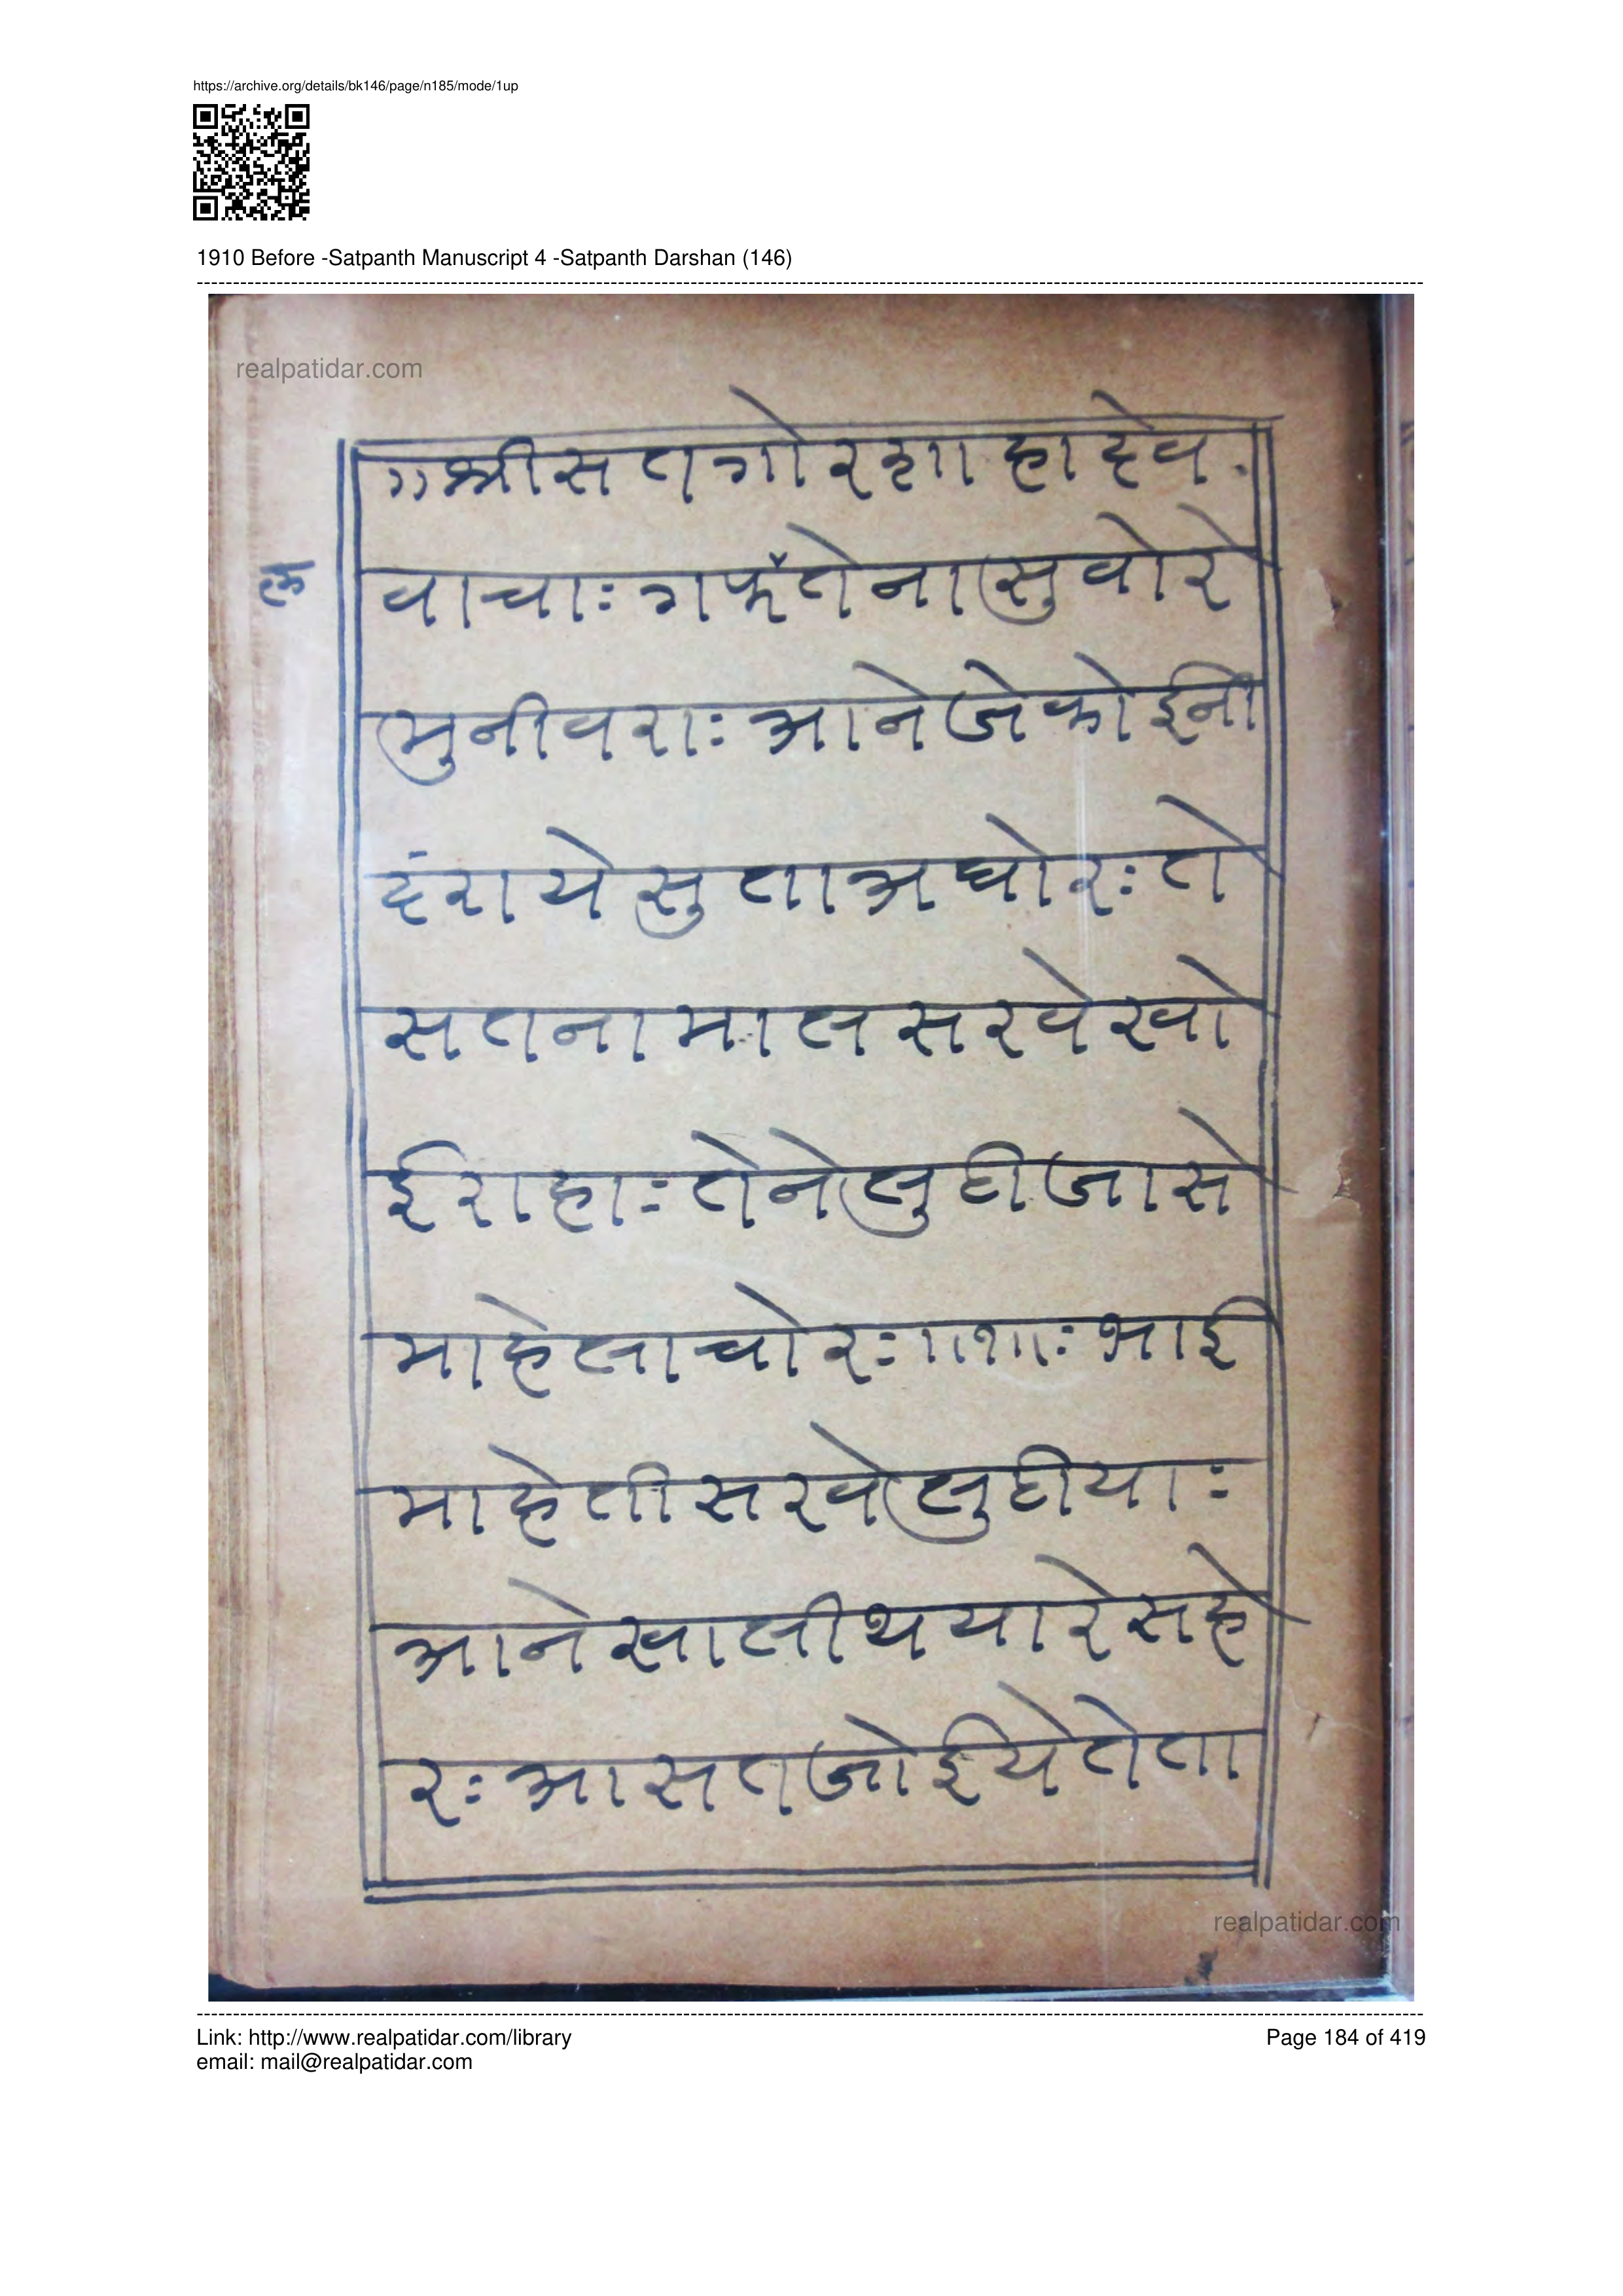 https://archive.org/details/bk146/page/n185/mode/1up
1910 Before -Satpanth Manuscript 4 -Satpanth Darshan (146)
realpatidar.com
॥श्रीसतगोरशाहादेव
वाचाः गफॅतेनासुवोरे
मुनीवराः आनेजेकोईनी
दंरायेसुताअघोरः ते
सतनामालसरवेखो
ईराहाः तेनेलुटीजासे
माहेलाचोरः ॥१॥ः भाई
माहेतीसरवेलुटीयाः
आनेखालीथयारेसहे
रः आसतजोईयेतेता
realpatidar.com
Link: http://www.realpatidar.com/library
Page 184 of 419
email: mail@realpatidar.com